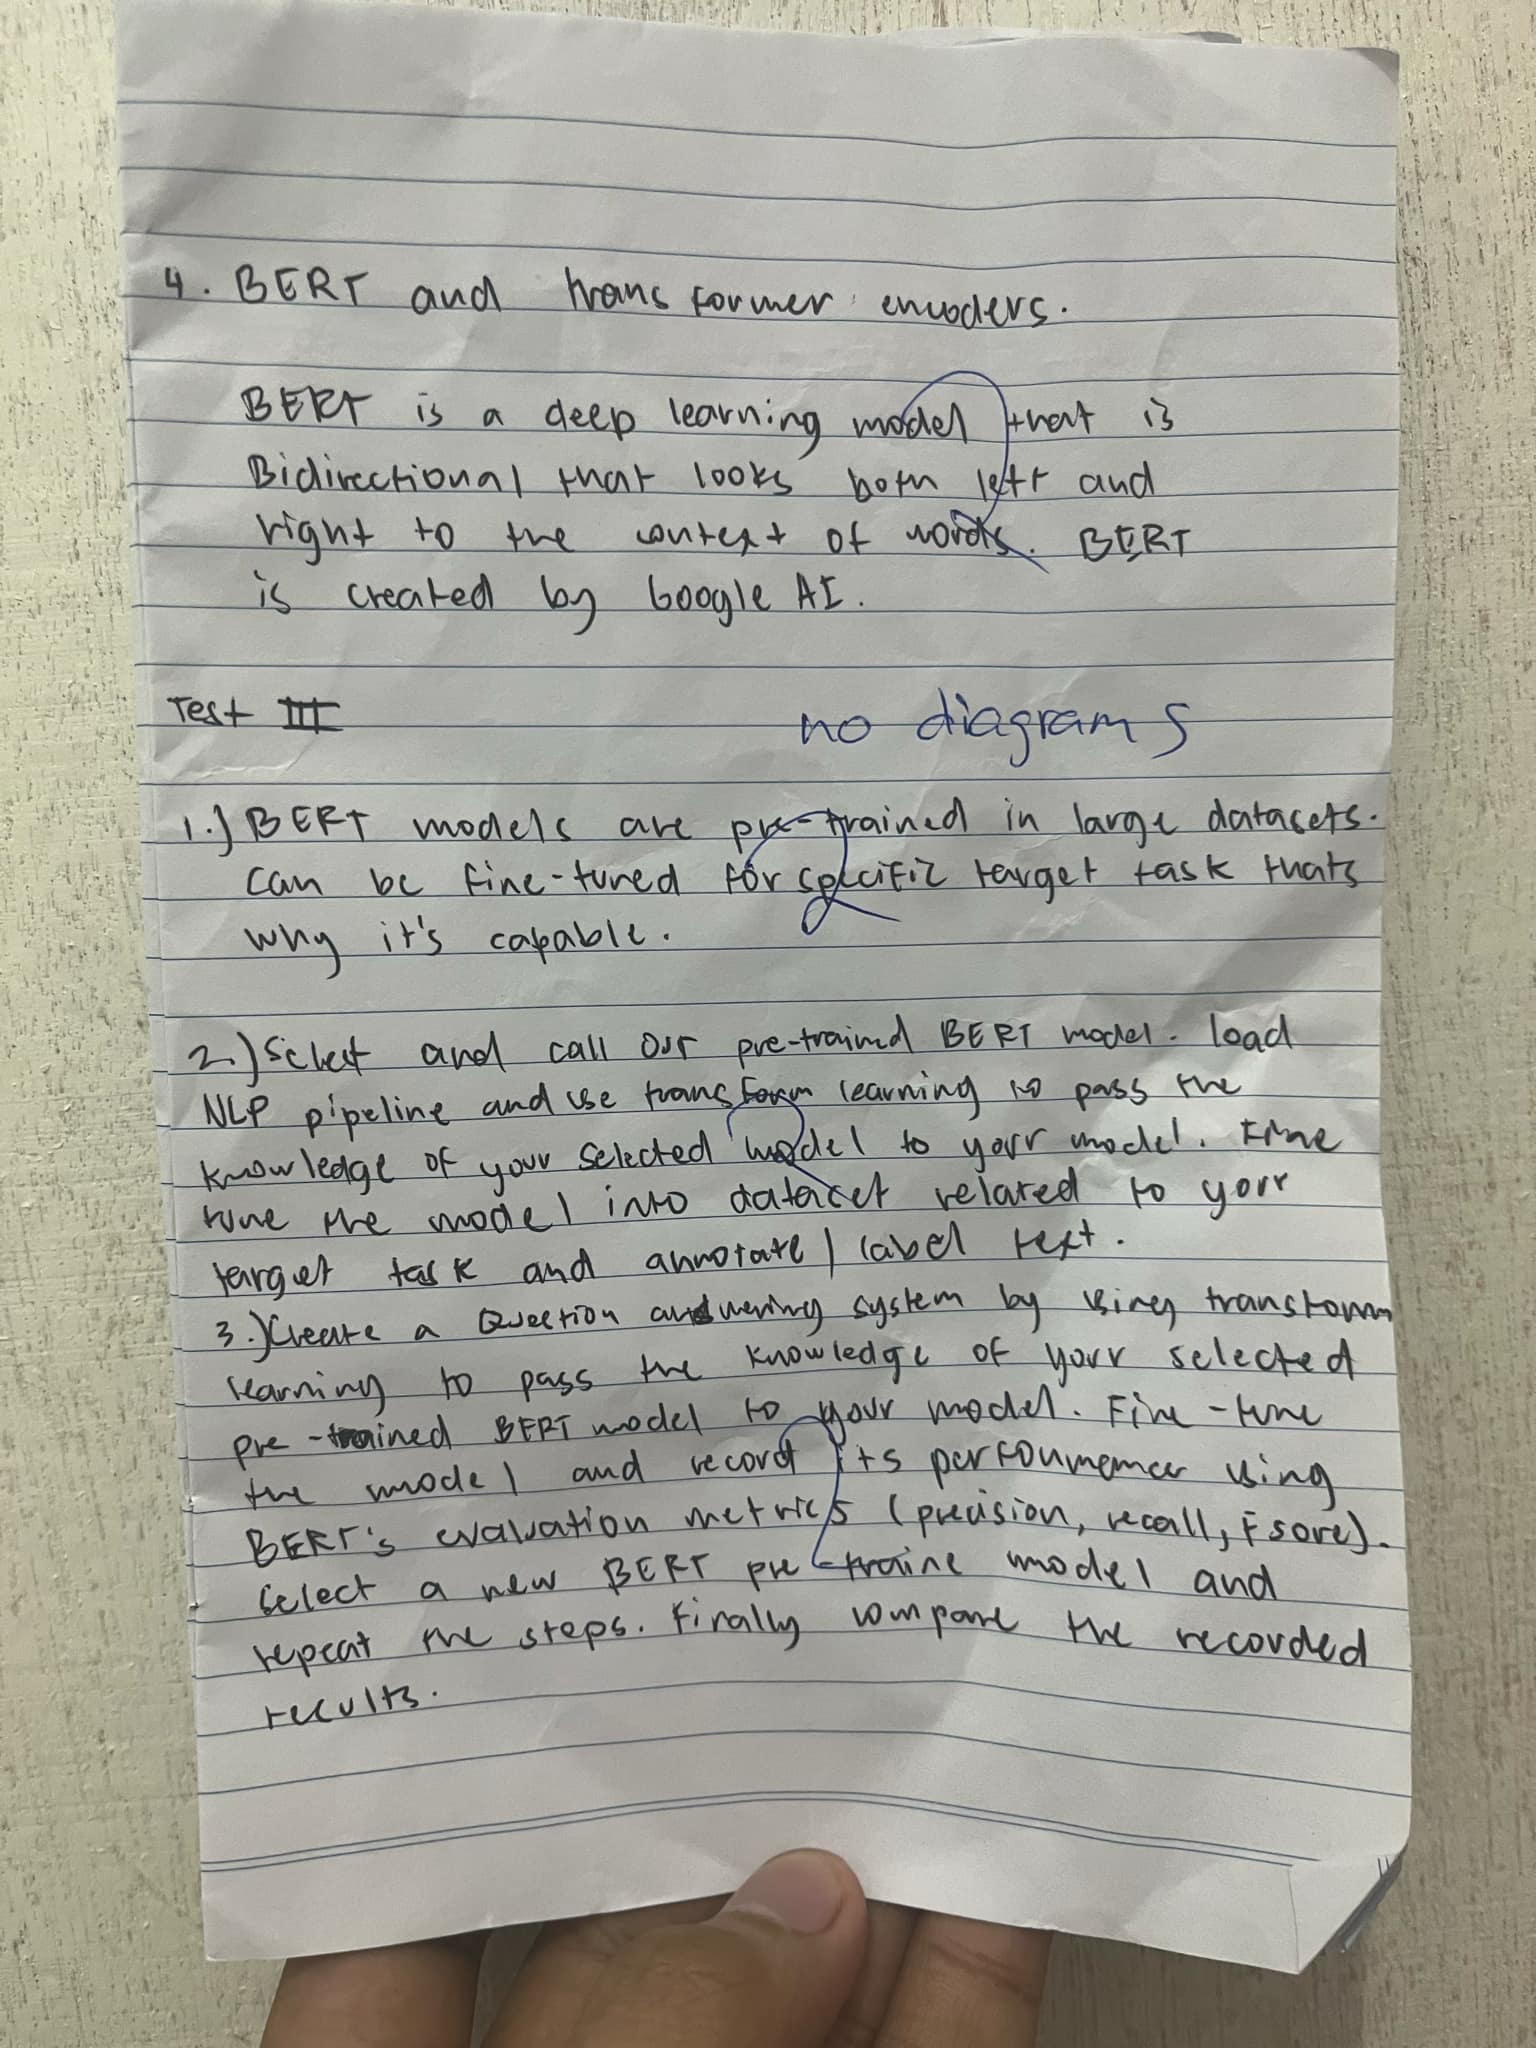 4. BERT and transformer encoders.
BERT is a deep learning model that is
Bidirectional that looks both left and
right to the context of words. BERT
is created by Google AI.
Test III
no diagrams
1.) BERT models are pre-trained in large datasets.
Can be fine-tuned for specific target task thats
why it's capable.
2.) Select and call our pre-trained BERT model. load
NLP pipeline and use transform learning to pass the
knowledge of your selected model to your model. Fine
tune the model into dataset related to your
target task and annotate / label text.
3.) Create a Question answering system by using transform
learning to pass the knowledge of your selected
pre-trained BERT model to your model. Fine-tune
the model and record its using
BERT's evaluation metrics (precision, recall, F sore).
Select a new BERT pre-traine model and
repeat the steps. Finally compare the recorded
results.